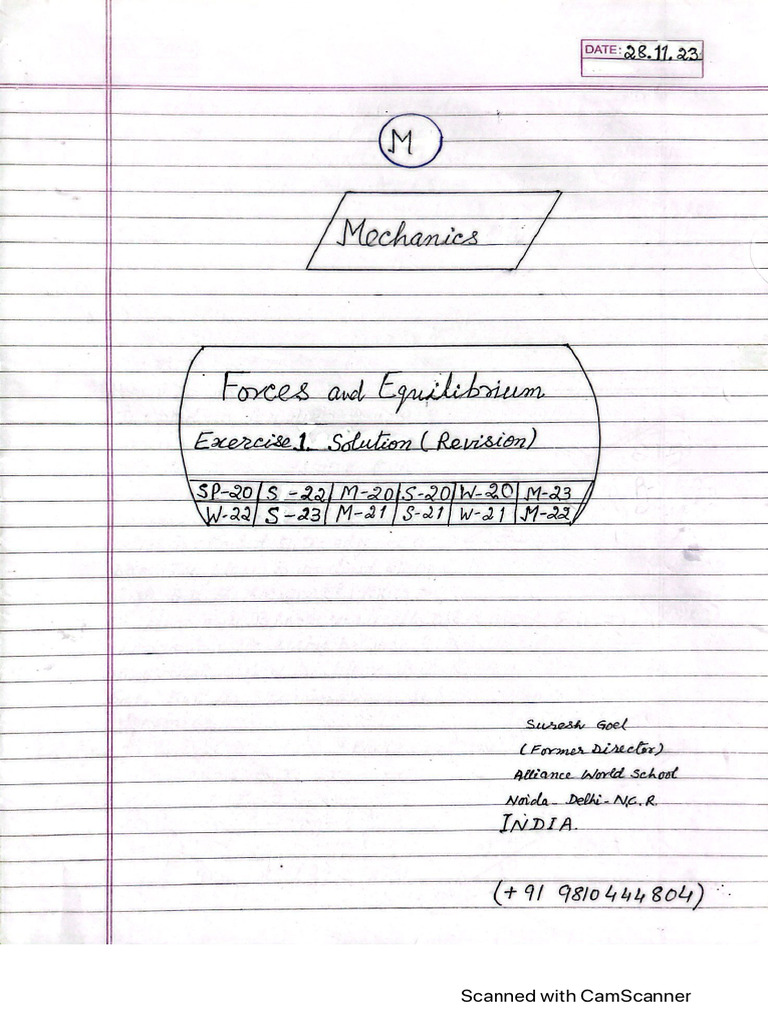 DATE: 28.11.23
M
Mechanics
Forces and Equilibrium
Exercise 1. Solution (Revision)
SP-20 S-22 M-20 S-20 W-20 M-23
W-22 S-23 M-21 S-21 W-21 M-22
Suresh Goel
(Former Director)
Alliance World School
Noida - Delhi - N.C.R.
INDIA.
(+91 9810444804)
Scanned with CamScanner